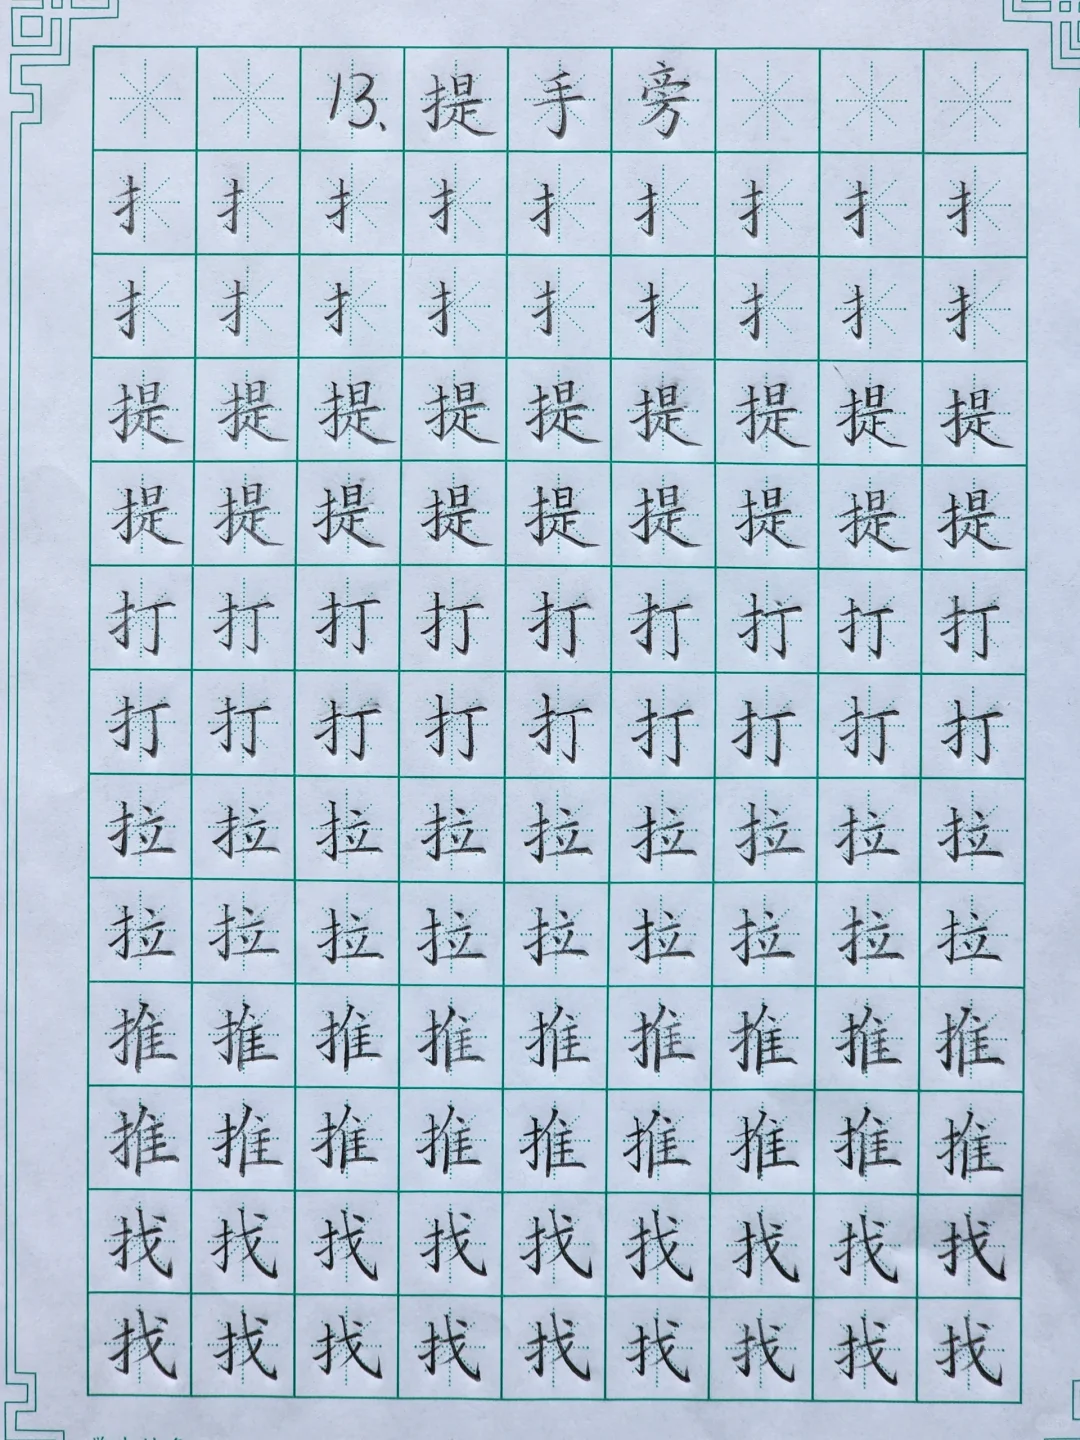 13、提手旁
扌扌扌扌扌扌扌扌扌
扌扌扌扌扌扌扌扌扌
提提提提提提提提提
提提提提提提提提提
打打打打打打打打打
打打打打打打打打打
拉拉拉拉拉拉拉拉拉
拉拉拉拉拉拉拉拉拉
推推推推推推推推推
推推推推推推推推推
找找找找找找找找找
找找找找找找找找找